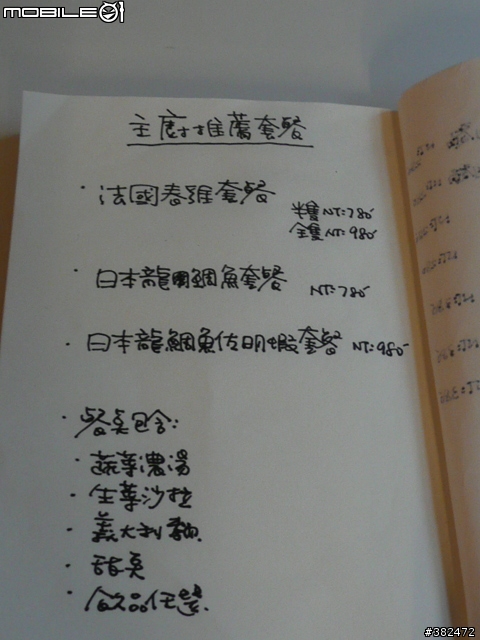 MOBILE01
主廚推薦套餐
·法國春雞套餐
半隻 NT:780
全隻 NT:980
·日本龍鯛魚套餐 NT:780
·日本龍鯛魚佐明蝦套餐 NT:980
·餐点包含:
·蔬菜濃湯
·生菜沙拉
·義大利麵
·甜点
·飲品任選
#382472